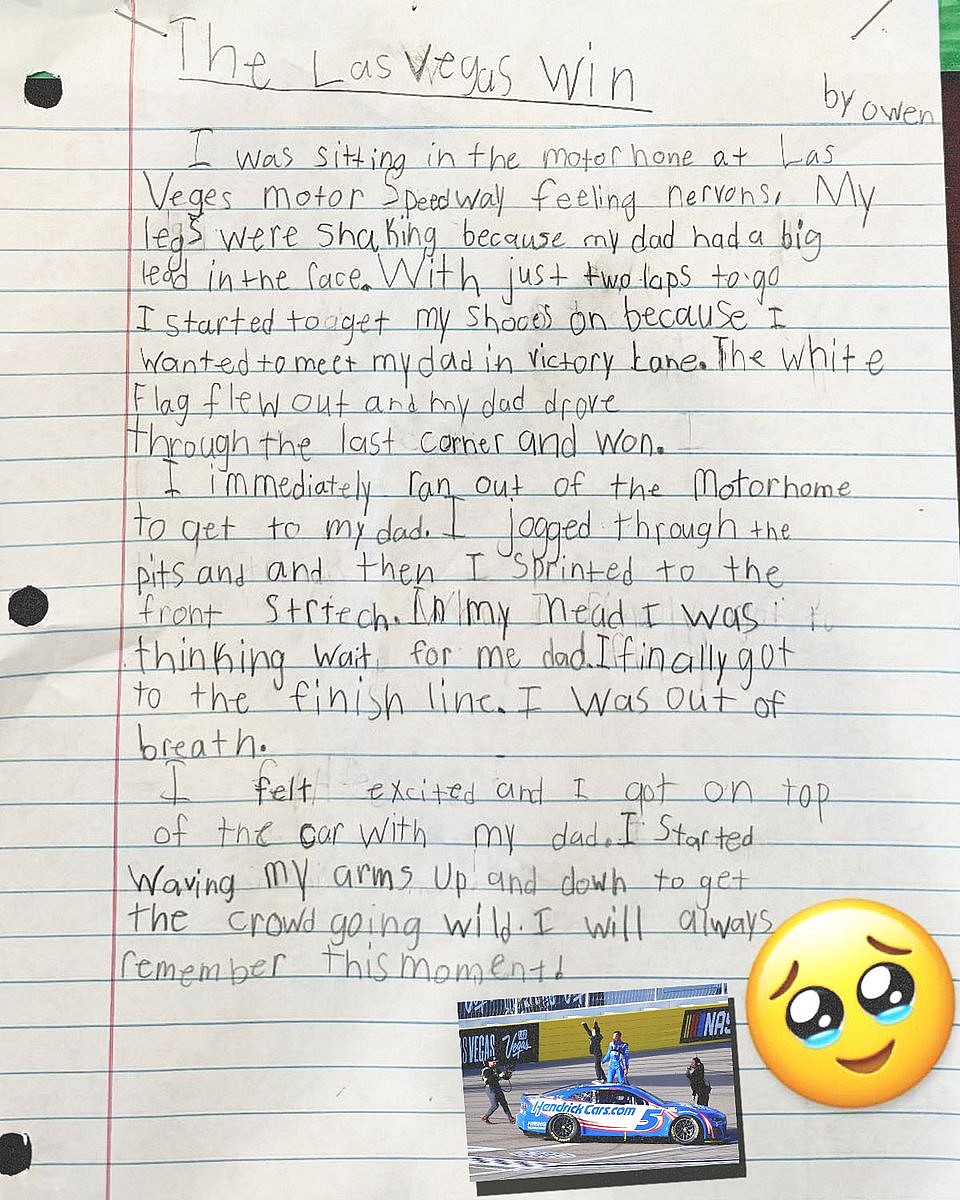 The Las Vegas Win
by owen
I was sitting in the motorhone at Las
Veges motor Speedway feeling nervons. My
legs were shaking because my dad had a big
lead in the race. With just two laps to go
I started to get my shooes on because I
wanted to meet my dad in victory Lane. The white
Flag flew out and my dad drove
through the last corner and won.
I immediately ran out of the Motorhome
to get to my dad. I jogged through the
pits and and then I sprinted to the
front Strtech. In my head I was
thinking wait for me dad. I finally got
to the finish line. I was out of
breath.
I felt excited and I got on top
of the car with my dad. I Started
Waving my arms up and down to get
the crowd going wild. I will always
remember this moment!
S VEGAS
Vegas
NAS
HendrickCars.com 5